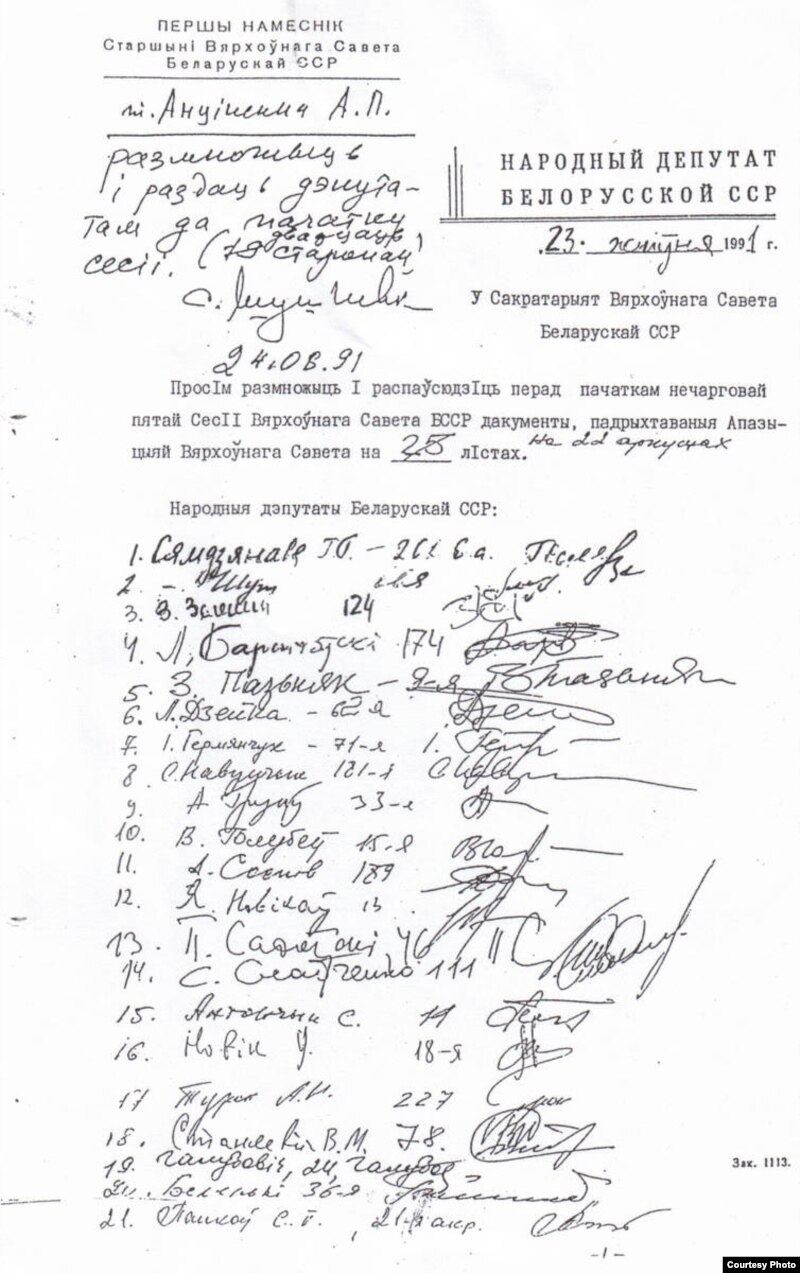 ПЕРШЫ НАМЕСНІК
Старшыні Вярхоўнага Савета
Беларускай ССР
т. Анціпенка А.П.
размножыць
і раздаць дэпута-
там да пачатку
дваццаць
сесіі. (старонак)
С. Шушкевіч
24.08.91
НАРОДНЫЙ ДЕПУТАТ
БЕЛОРУССКОЙ ССР
23. жніўня 1991 г.
У Сакратарыят Вярхоўнага Савета
Беларускай ССР
ПросІм размножыць І распаўсюдзІць перад пачаткам нечарговай
пятай СесІІ Вярхоўнага Савета БССР дакументы, падрыхтаваныя Апазы-
цыяй Вярхоўнага Савета на лІстах. на 22 аркушах
Народныя дэпутаты Беларускай ССР:
1. Сямдзянава Г.
2. Шут
3. 124
4. Л, Баршчэўскі 174
5. З. Пазьняк - 9-я
6. Л. Дзейка - 62-я
7. І. Герменчук - 71-я
8 С. Навумчык 181-я
9. А Грузаў 33-я
10. В. Голубеў 15-я
11. 189
12. Я. Новікаў 13
13. П. Садоўскі 46
14. С. Слабченко 111
15. Антончык С. 11
16. Новік У. 18-я
17 Турок А.И. 227
18. Станкевіч В.М. 78.
19. Галубовіч, 24,
20. Беленькі 36-я
21. Папкоў С. Г. 21-я акр.
Зак. 1113.
-1-
Courtesy Photo